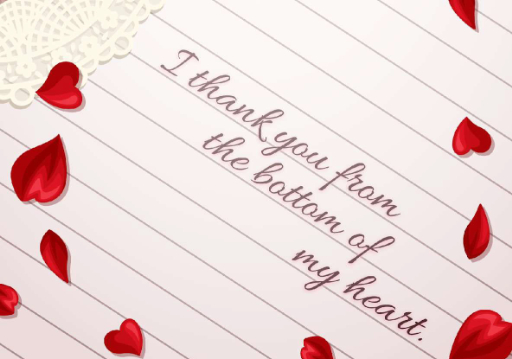 I thank you from
the bottom of
my heart.